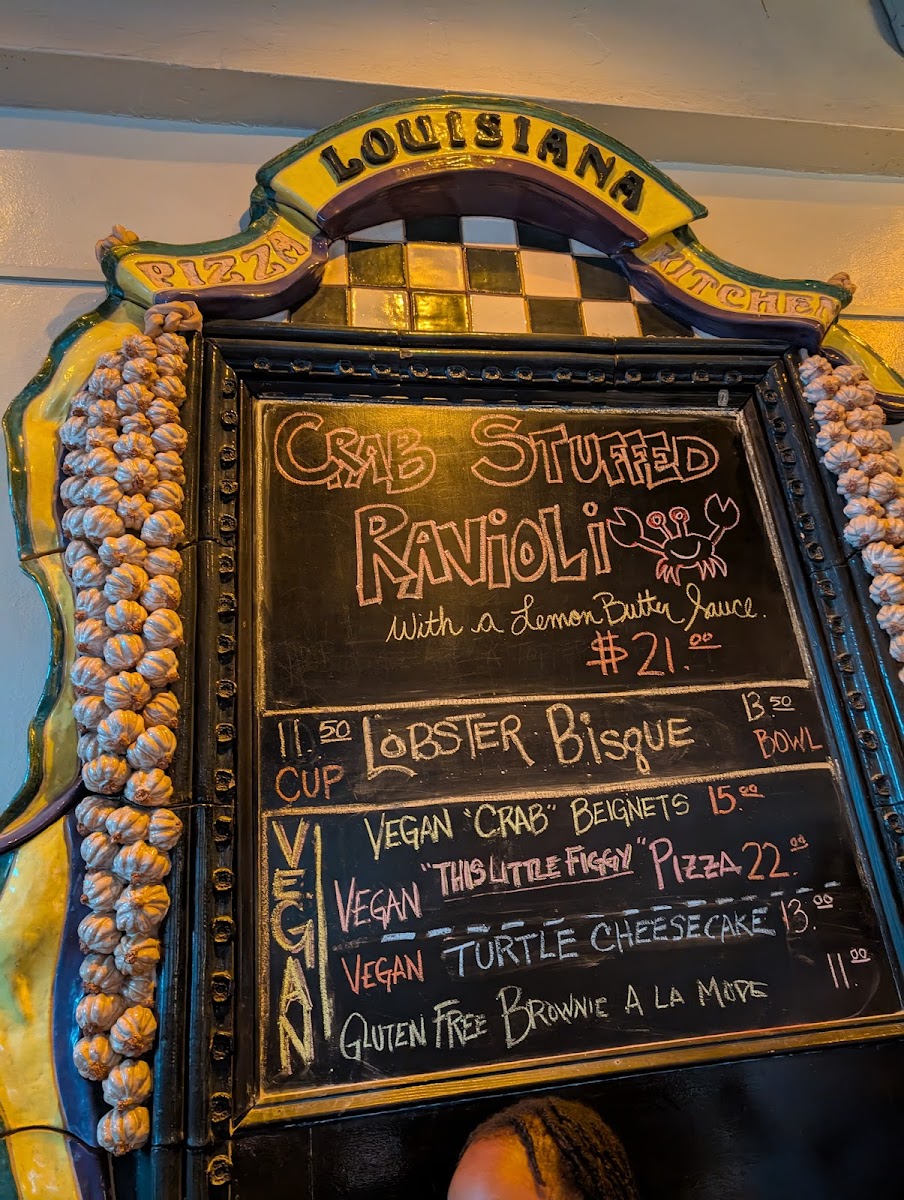 LOUISIANA
PIZZA KITCHEN
CRAB STUFFED
RAVIOLI
With a Lemon Butter Sauce.
$21.00
11.50 LOBSTER BISQUE 13.50
CUP BOWL
VEGAN
VEGAN "CRAB" BEIGNETS 15.00
VEGAN "THIS LITTLE FIGGY" PIZZA 22.00
VEGAN TURTLE CHEESECAKE 13.00
GLUTEN FREE BROWNIE A LA MODE 11.00